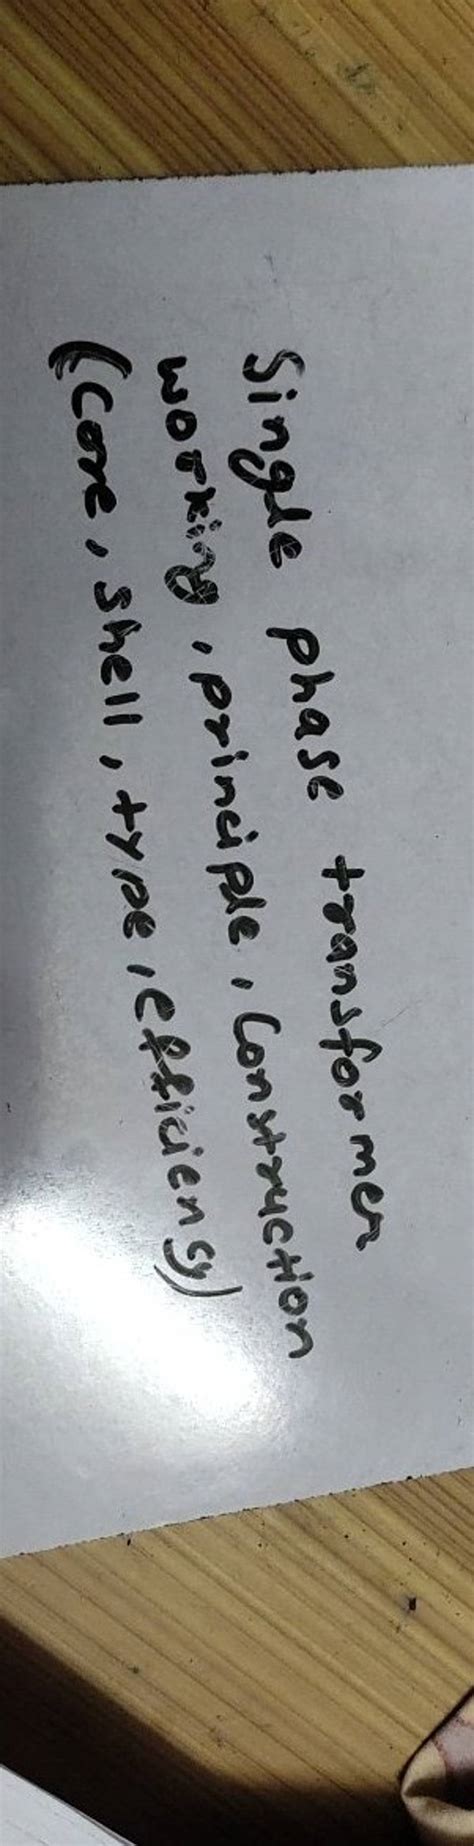 Single phase transformer
working, principle, Construction
(Core, shell, type, efficiensy)